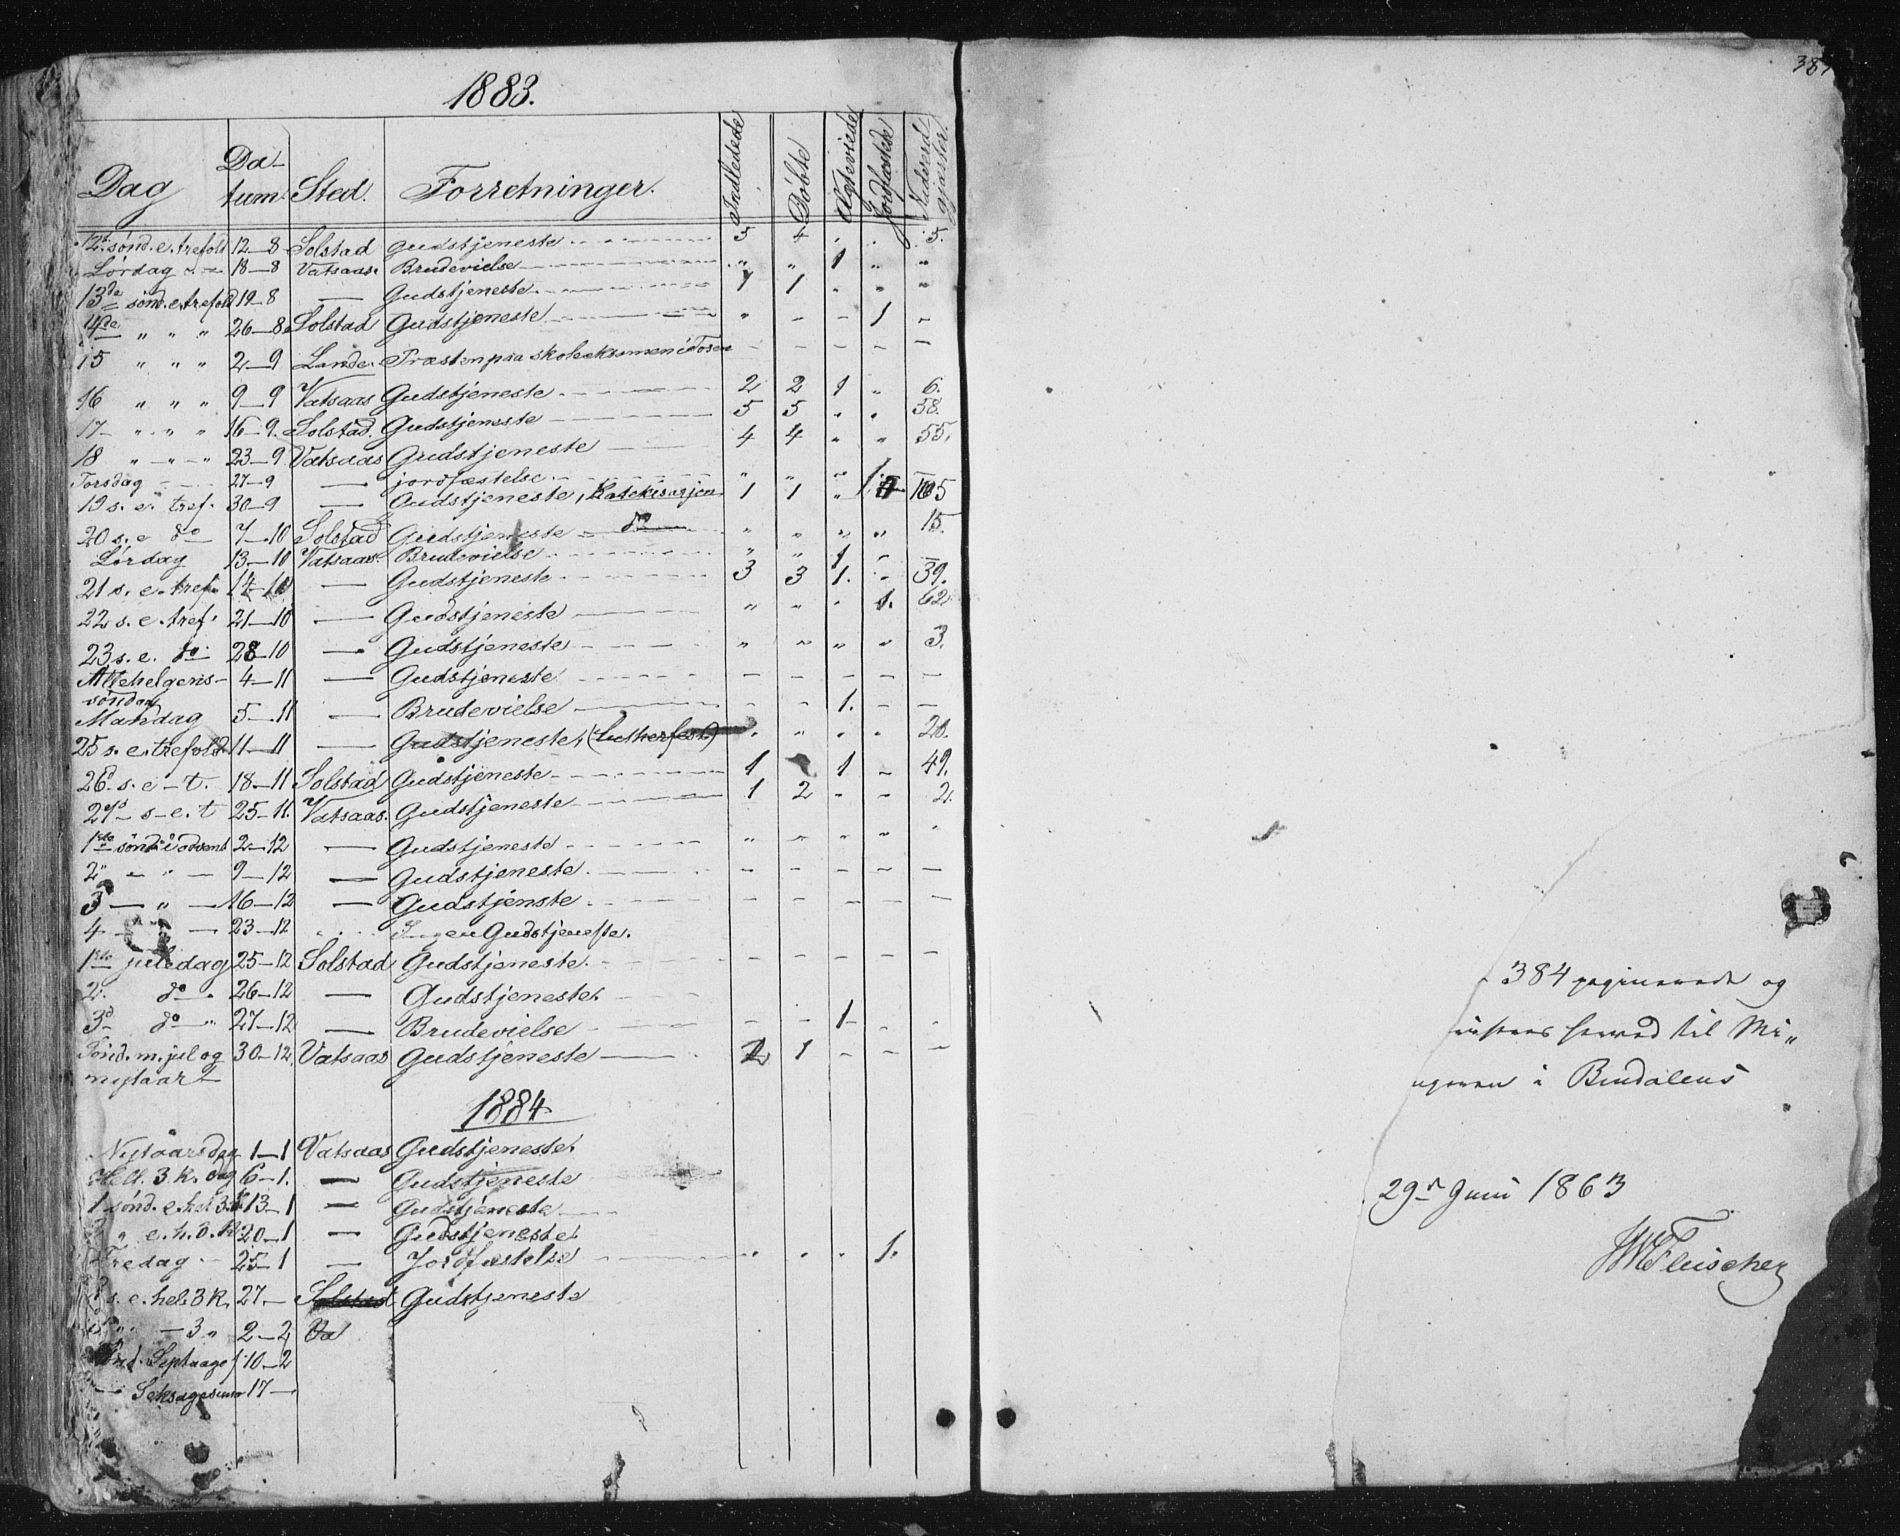 1883.
Dag Da- Sted. Forretninger. Indledede Døbte Ægteviede Jordfæstede Nadverd
tum. gjæster.
12te sønd. e. trefold 12-8 Solstad Gudstjeneste 5 4 " " 5.
Lørdag 18-8 Vatsaas. Brudevielse " " 1 " "
13de sønd. e. trefold 19-8 — Gudstjeneste 1 1 " " "
14de " " " 26-8 Solstad Gudstjeneste " - - 1 -
15 " " " 2-9 Lande. Præsten paa skoleeksamen i Tosen - - - - -
16 " " " 9-9 Vatsaas Gudstjeneste 2 2 1 " 6.
17- " " " 16-9. Solstad. Gudstjeneste 5 5 " " 58.
18 " - " - " 23-9 Vatsaas Gudstjeneste 4 4 " " 55.
Torsdag 27-9 — jordfæstelse " " " 1 -
19 s. e. tref. 30-9 — Gudstjeneste, Katekisasjon 1 1 " 105
20 s. e do 7-10 Solstad Gudstjeneste - do " " " " 15.
Lørdag 13-10 Vatsaas. Brudevielse " " 1 " -
21 s. e. tref. 14-10 — Gudstjeneste 3 3 1. - 39.
22 s. e. tref. 21-10 — Gudstjeneste " " " 1. 62
23 s. e. do 28-10 — Gudstjeneste " " " " 3.
Allehelgens- 4-11 — Gudstjeneste - - - - -
søndag
Mandag 5-11 — Brudevielse - - 1. - -
25 s. e. trefold 11-11 — Gudstjeneste, (Lutherfest) " " " " 20.
26 s. e - t. 18-11 Solstad Gudstjeneste 1 1 - 49.
27 s - e. t 25-11. Vatsaas. Gudstjeneste 1 2 - - 2.
1ste sønd. i advent 2-12 — Gudstjeneste " - " " "
2 " - " - 9-12 — Gudstjeneste. - - - - -
3 — " — 16-12 — Gudstjenste. - - - - -
4 - - 23-12 Ingen Gudstjeneste.
1ste juledag 25-12 Solstad Gudstjeneste. - - - - -
2. do 26-12 — Gudstjeneste.
3d do " 27-12 — Brudevielse - - 1 - -
Sønd. m. jul og 30-12 Vatsaas Gudstjeneste 2 1 - - -
nytaar
1884
Nytaarsdag 1-1 Vatsaas Gudstjeneste.
Hell. 3 k. dag 6-1. — Gudstjeneste
1 sønd. e. hel 3 k 13-1 — Gudstjeneste
2 " e. h. 3. K 20-1 — Gudstjeneste.
Fredag 25-1 — Jordfæstelse " " " 1.
3 s. e. hel. 3 K. 27- Solstad Gudstjeneste
" - 3 " 2-2 Va
Sønd. Septuages 10-2
- Seksagesima 17-
384 paginerede og
forved til Mi-
i Bindalens
29de Juni 1863
Fleischer